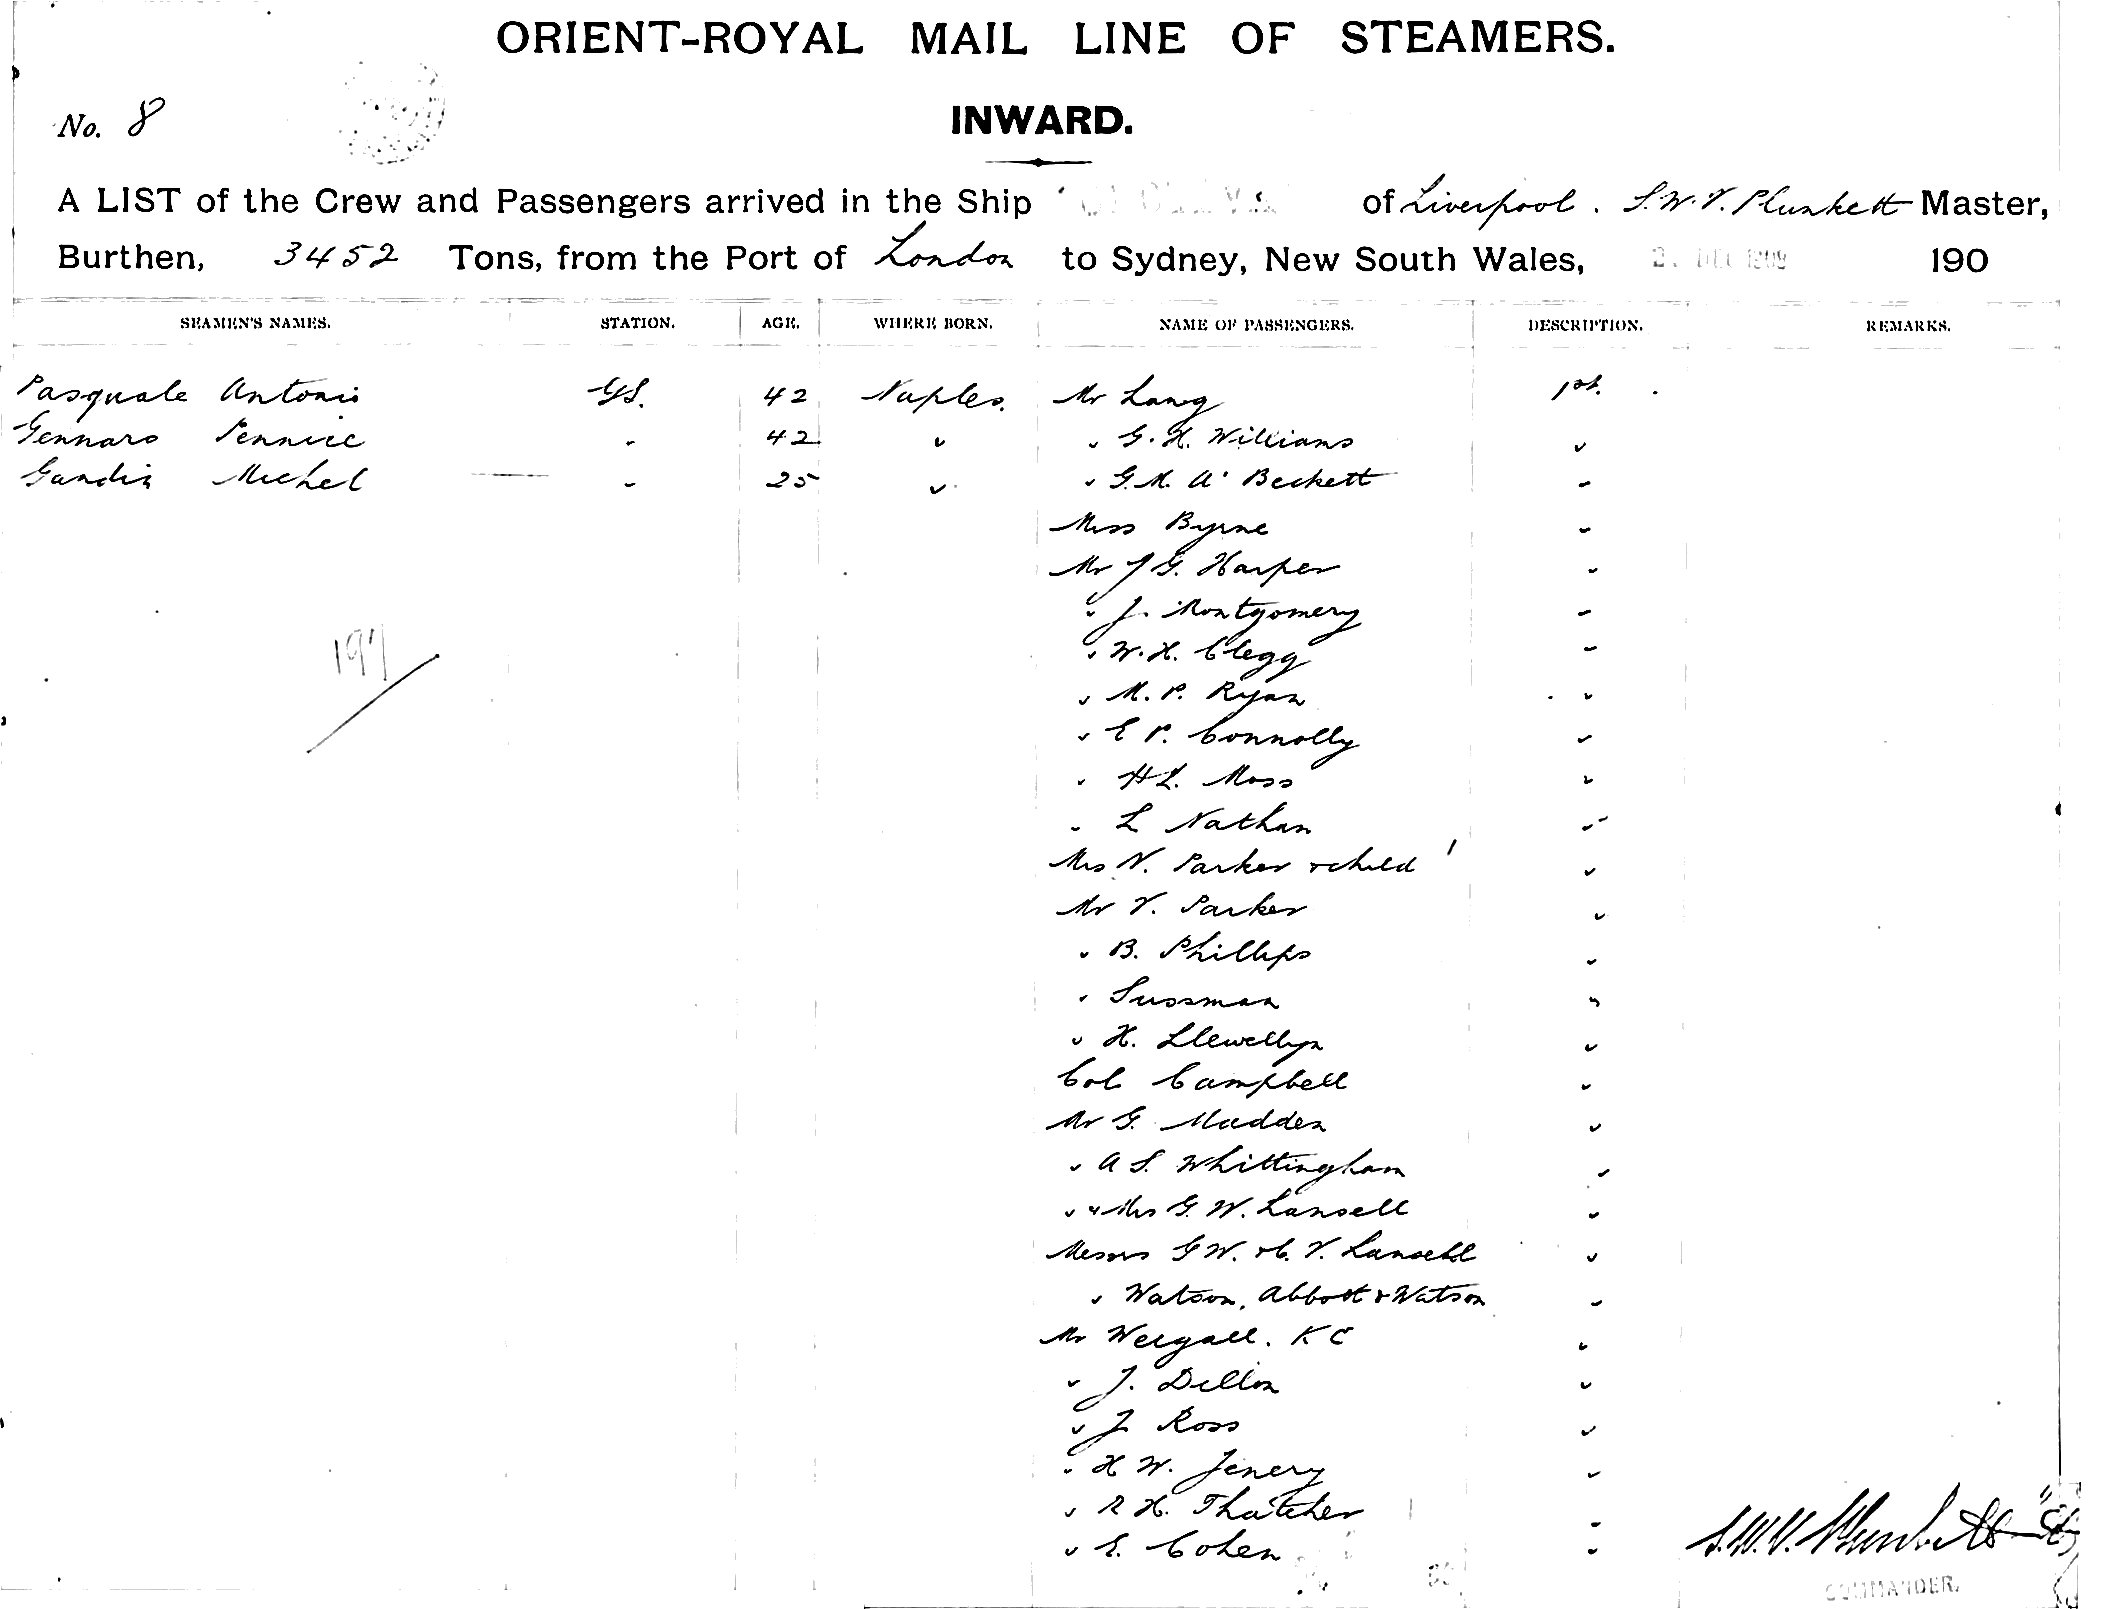 ORIENT-ROYAL MAIL LINE OF STEAMERS.
No. 8
INWARD.
A LIST of the Crew and Passengers arrived in the Ship of Liverpool. S.W.V. Plunkett Master,
Burthen, 3452 Tons, from the Port of London to Sydney, New South Wales, 190
SEAMEN'S NAMES. STATION. AGE. WHERE BORN. NAME OF PASSENGERS. DESCRIPTION. REMARKS.
Pasquale Antonio GS. 42 Naples. Mr Lang 1st.
Gennaro 42 " " G. H. Williams "
Michel " 25 " " G.M. A' Beckett "
Miss Byrne "
Mr J G. Harper "
" J. Montgomery "
" W. H. Clegg "
" M. P. Ryan "
" E P. Connolly "
" H L. Moss "
" L Nathan "
Mrs N. Parker & child 1 "
Mr V. Parker "
" B. Phillips "
" Sussman "
" H. Llewellyn "
Col Campbell "
Mr G. Madden "
" A S. Whittingham "
" " Mrs G. W. Lansell "
Messrs G W. & C. V. Lansell "
" Watson, Abbott & Watson "
Mr Weigall. K C "
" J. Dillon "
" J Ross "
" H W. Jenery "
" R H. Thatcher "
" E. Cohen "
197
S.W.V. Plunkett
COMMANDER.